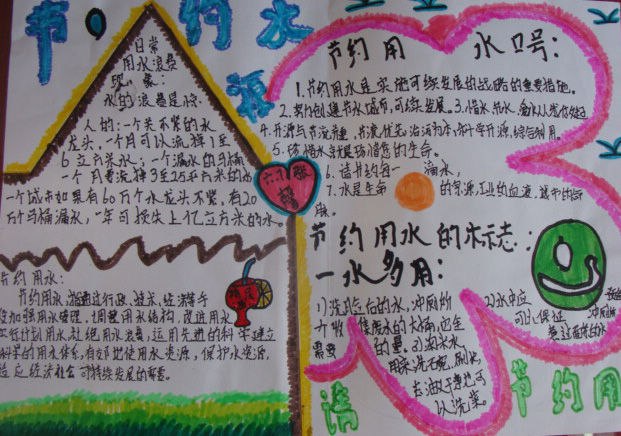 节约水
源
日常
用水浪费
现象：
水的浪费是惊
人的：一个关不紧的水
龙头，一个月可以流掉1至
6立方米水；一个漏水的马桶
一个月要流掉3至25立方米的水
一个城市如果有60万个水龙头不紧，有20
万个马桶漏水，一年可损失上亿立方米的水。
节约用水：
节约用水，是通过行政、技术、经济等手
段加强用水管理，调整用水结构，改进用水
实行计划用水，杜绝用水浪费，运用先进的科学建立
科学的用水体系，有效地使用水资源，保护水资源，
适应经济社会可持续发展的需要。
节约用 水口号：
1.节约用水是实施可续发展的战略的重要措施。
2.努力创建节水城市，可续发展。3.惜水、节水、爱水从你
4.开源与节流并重，节流优先，治污为本，科学开源，综合利用。
5.珍惜水就是珍惜您的生命。
6.请节约每一滴水，
7.水是生命 的资源，工业的血液，城市的命
脉。
节约用水的标志：
一水多用：
1)洗脸后的水，冲厕所
需要
的量。2)淘米水
用来洗碗、刷水，
去油又干净也可
以洗菜。
可以保证
请 节约用